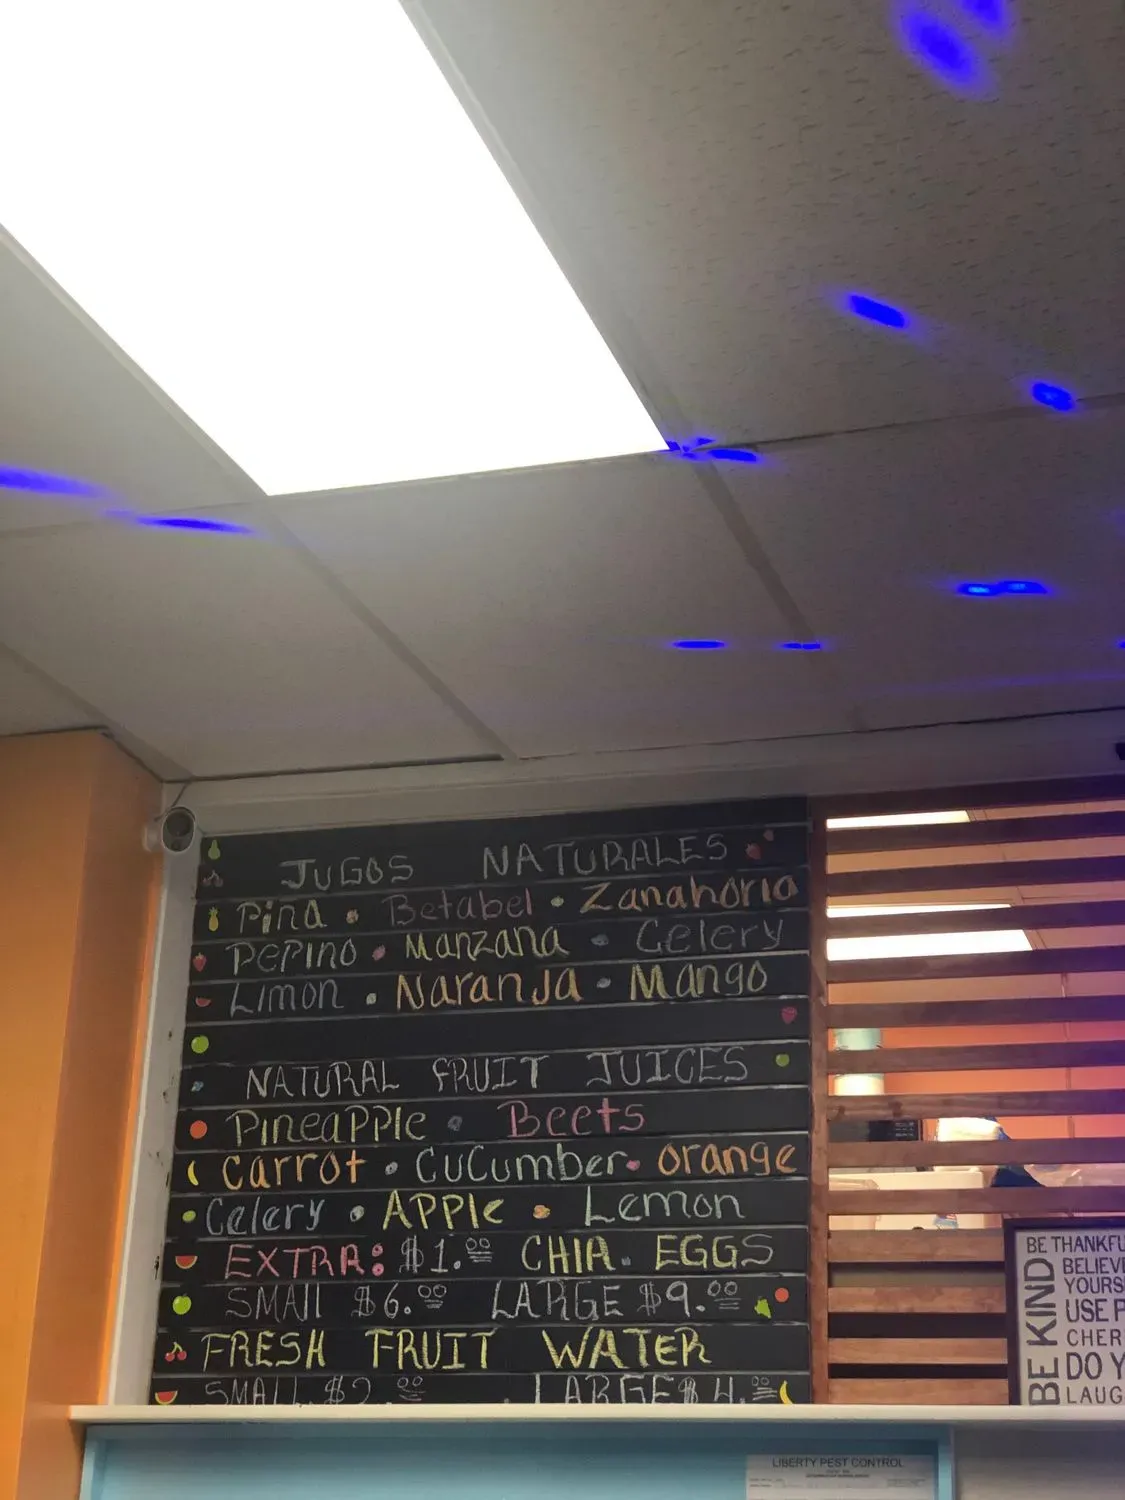 JUGOS NATURALES
Piña • Betabel • Zanahoria
PEPINO • Manzana • Celery
Limon • Naranja • Mango
NATURAL FRUIT JUICES
PineaPPle • Beets
Carrot • CuCumber • orange
Celery • APPle • Lemon
EXTRA: $1.00 CHIA. EGGS
SMAll $6.00 LARGE $9.00
FRESH FRUIT WATER
SMALL $2.00 LARGE $4.00
BE KIND
BE THANKFU
BELIEVE
YOURS
USE P
CHER
DO Y
LAUG
LIBERTY PEST CONTROL